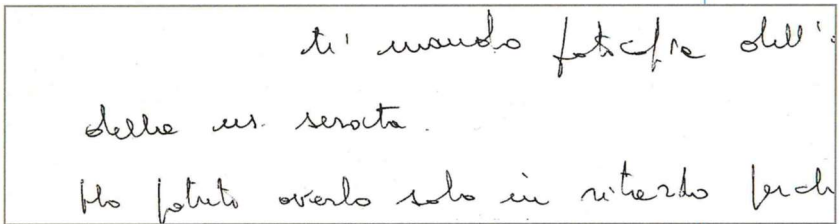 ti mando fotocopia dell'
della ns. serata.
Ho potuto averlo solo in ritardo perch